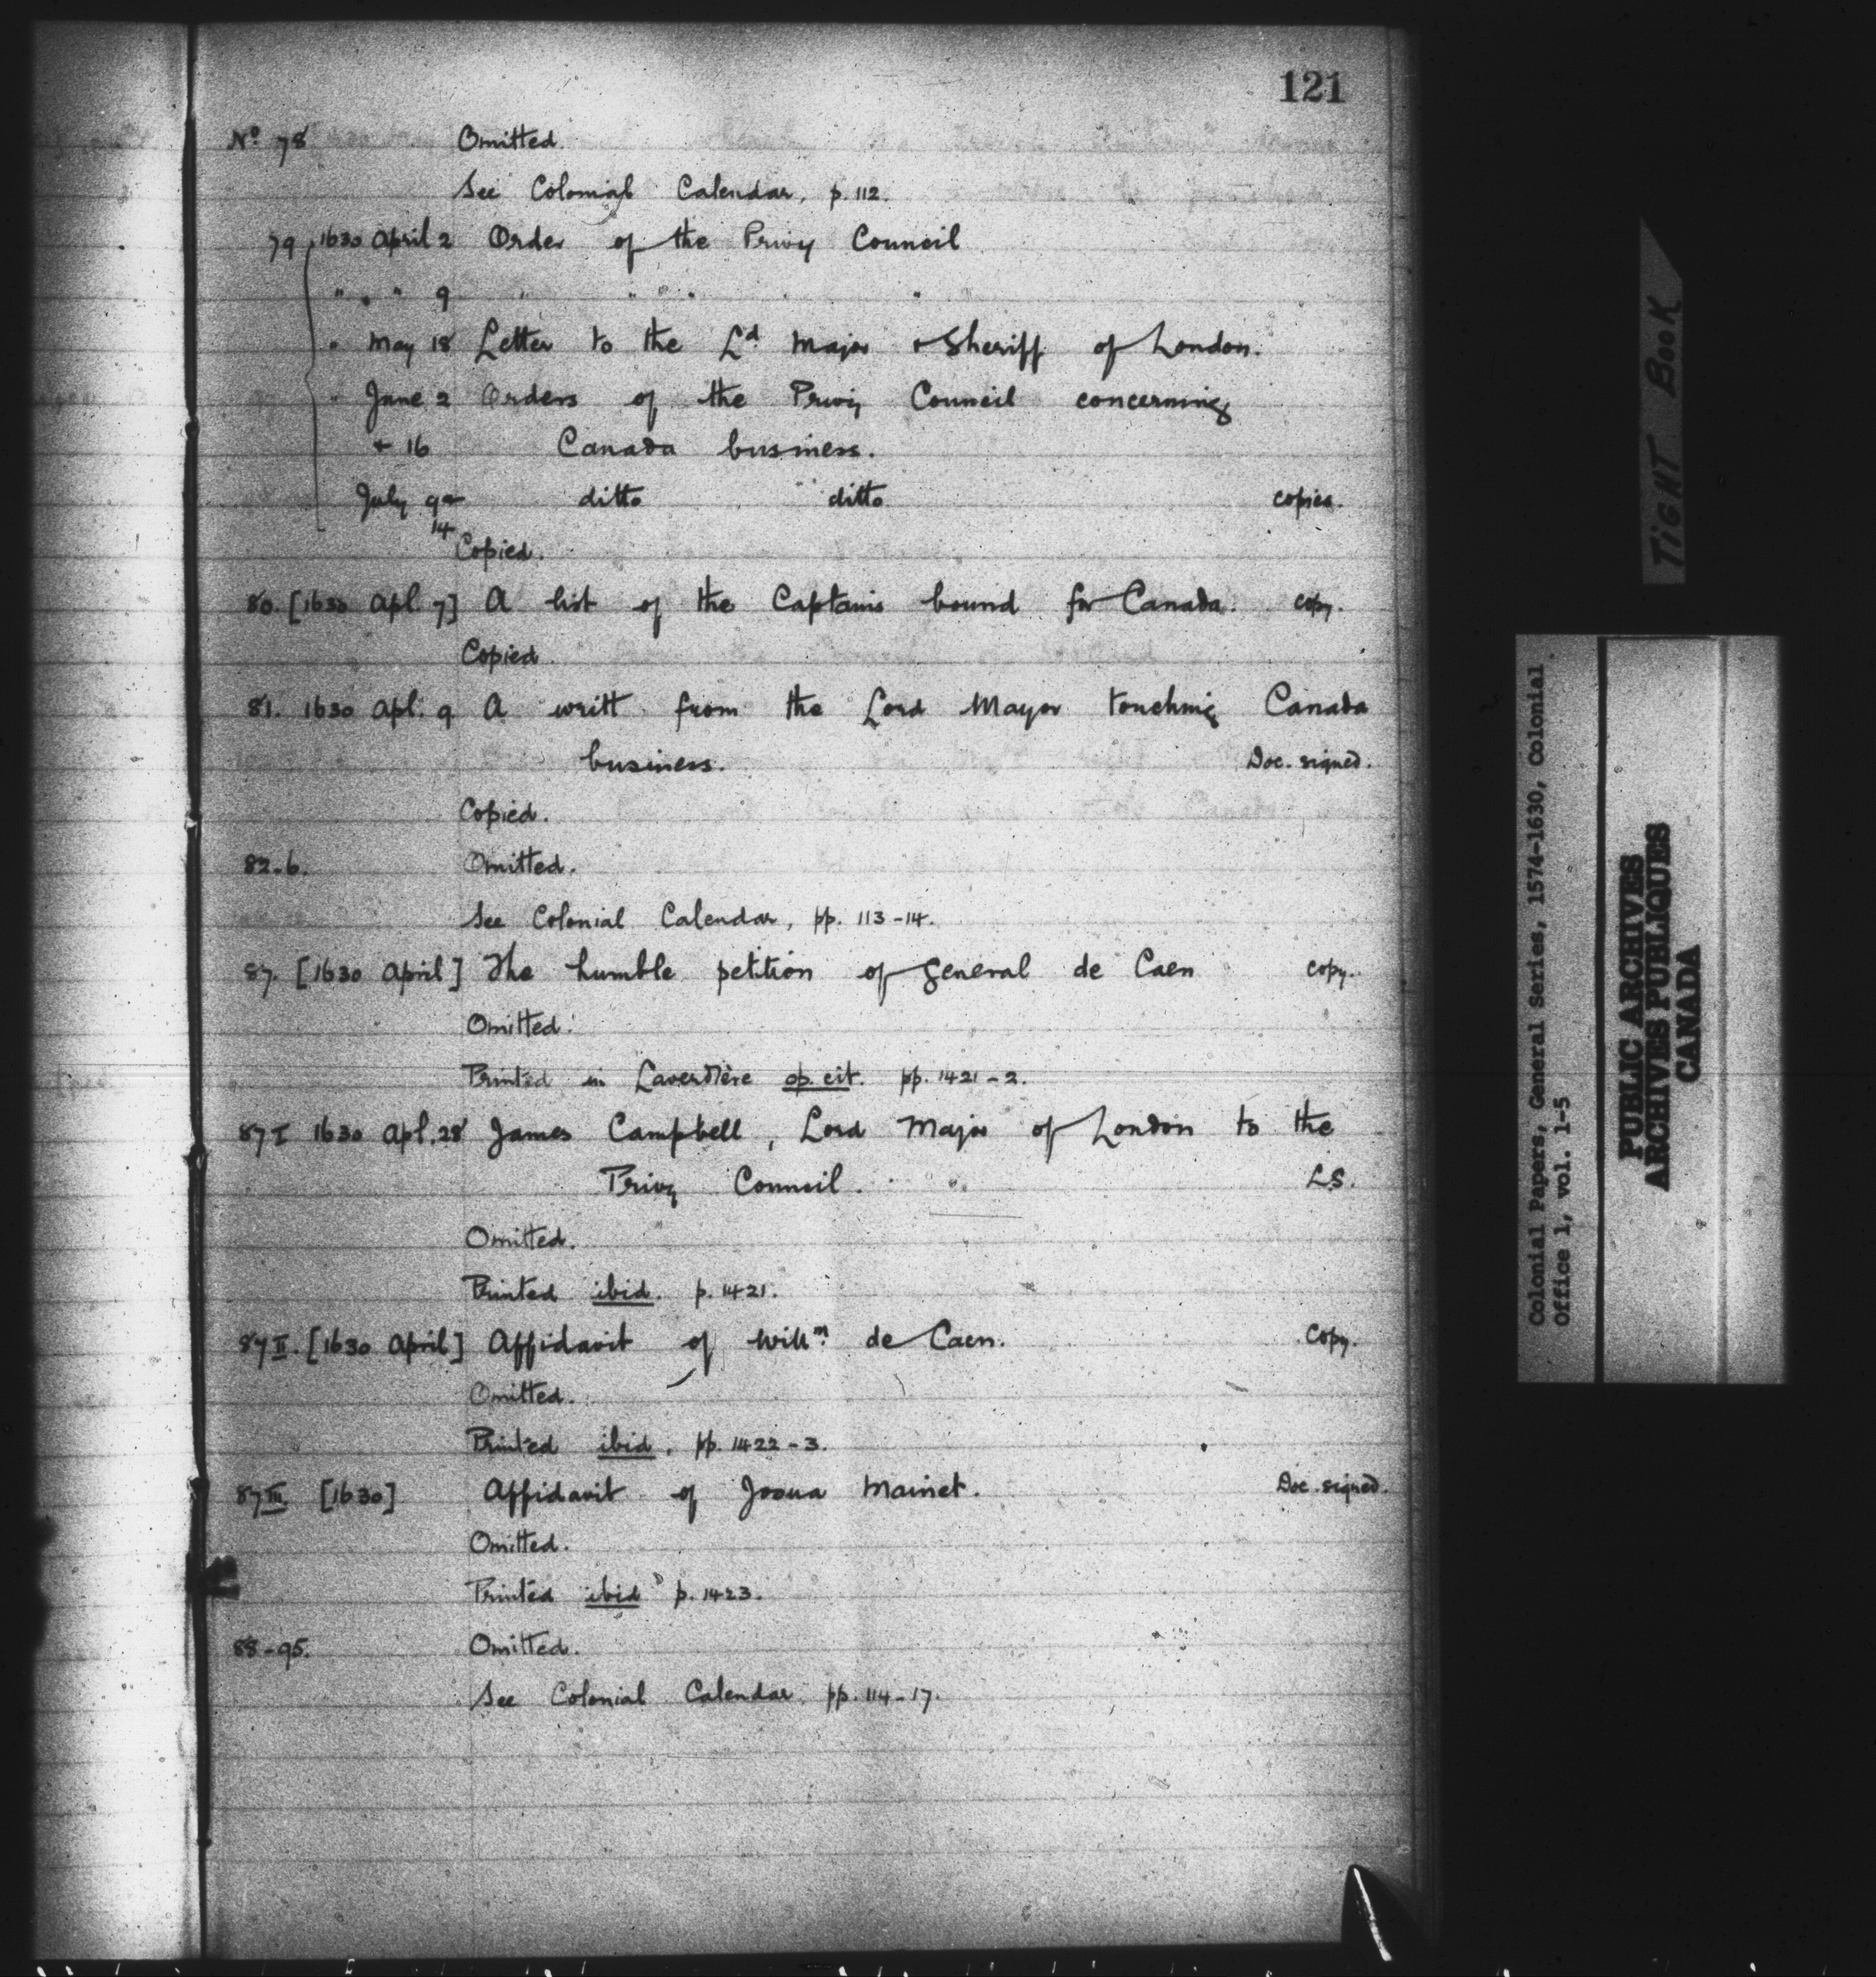 121
No. 78 Omitted.
See Colonial Calendar, p. 112.
79 1630 April 2 Order of the Privy Council
" " " 9 " " " "
" May 18 Letter to the Ld Major & Sheriff of London.
" June 2 Orders of the Privy Council concerning
& 16 Canada business.
July 9 & ditto ditto copies.
14
Copied.
80. [1630 Apl. 7] A list of the Captains bound for Canada. copy.
Copied.
81. 1630 Apl. 9 A writt from the Lord Mayor touching Canada
business. Doc. signed.
Copied.
82-6. Omitted.
See Colonial Calendar, pp. 113-14.
87. [1630 April] The humble petition of General de Caen copy.
Omitted.
Printed in Laverdière op. cit. pp. 1421-2.
87 I 1630 Apl. 28 James Campbell, Lord Major of London to the
Privy Council. L.S.
Omitted.
Printed ibid. p. 1421.
87 II. [1630 April] Affidavit of Willm. de Caen. Copy.
Omitted.
Printed ibid. pp. 1422-3.
87 III. [1630] Affidavit of Josua Mainet. Doc. signed.
Omitted.
Printed ibid p. 1423.
88-95. Omitted.
See Colonial Calendar, pp. 114-17.
TIGHT BOOK
Colonial Papers, General Series, 1574-1630, Colonial
Office 1, vol. 1-5
PUBLIC ARCHIVES
ARCHIVES PUBLIQUES
CANADA